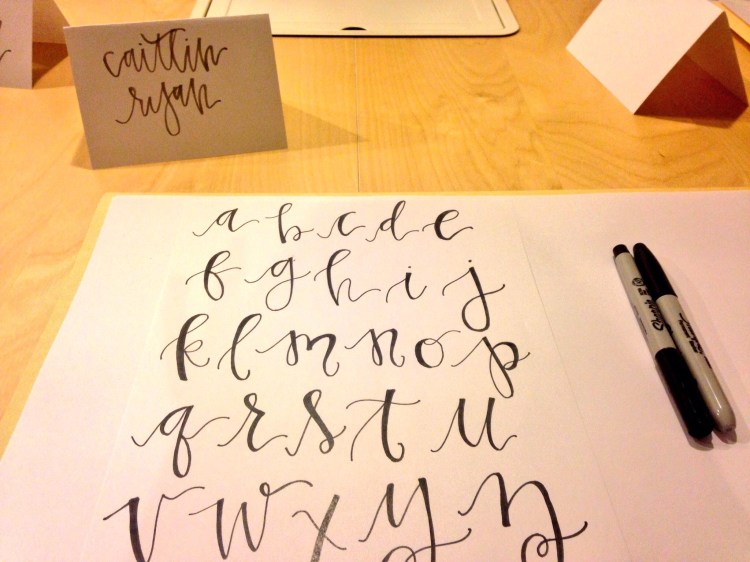 caitlin
ryan
a b c d e
f g h i j
k l m n o p
q r s t u
v w x y z
Sharpie